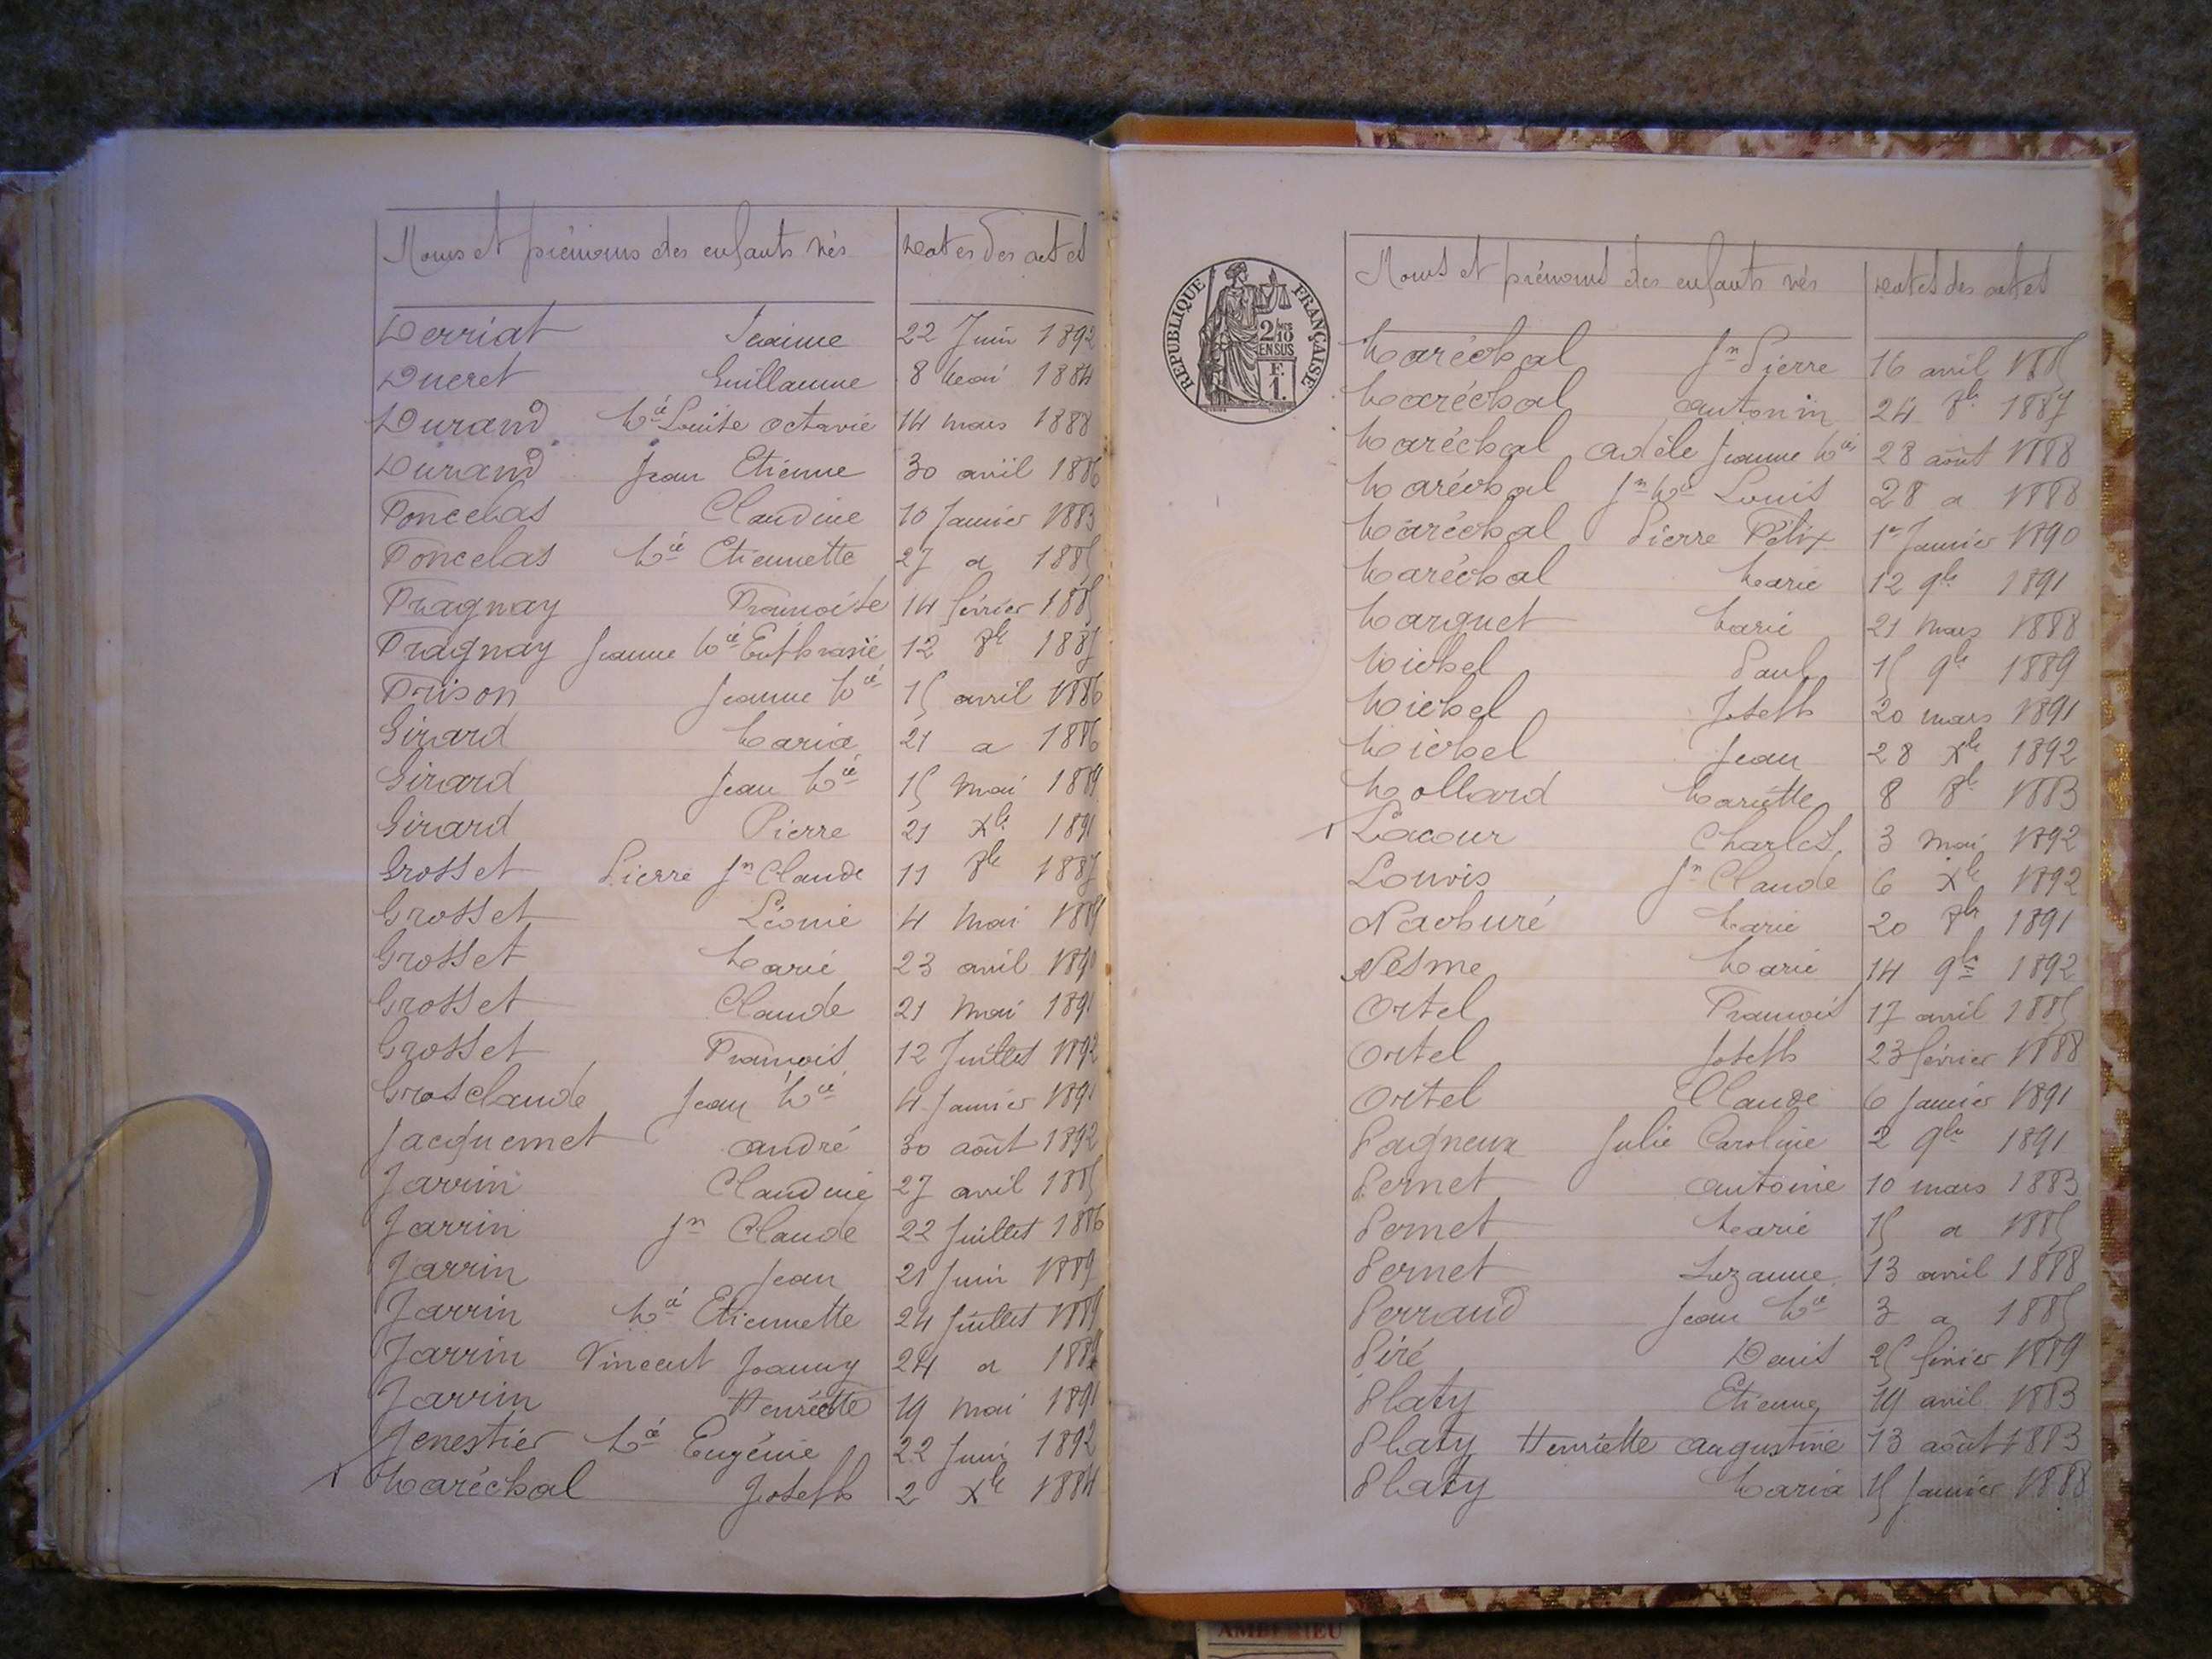 Noms et prénoms des enfants nés Dates des actes
Derriat Jeanne 22 Juin 1892
Ducret Guillaume 8 Mai 1884
Durand Mie Louise Octavie 14 mars 1888
Durand Jean Etienne 30 avril 1886
Foncelas Claudine 10 Janvier 1883
Foncelas Mie Etiennette 27 d 1885
Fragnay Françoise 14 février 1885
Fragnay Jeanne Mie Euphrasie 12 8bre 1887
Frison Jeanne Mie 15 avril 1886
Girard Maria 21 d 1886
Girard Jean Mie 15 mai 1889
Girard Pierre 21 Xbre 1891
Grosset Pierre Jn Claude 11 8bre 1887
Grosset Léonie 4 mai 1889
Grosset Marie 23 avril 1890
Grosset Claude 21 mai 1891
Grosset François 12 Juillet 1892
Grosclaude Jean Mie 4 Janvier 1891
Jacquemet André 30 août 1892
Jarrin Claudine 27 avril 1885
Jarrin Jn Claude 22 Juillet 1886
Jarrin Jean 21 Juin 1889
Jarrin Mie Etiennette 24 Juillet 1889
Jarrin Vincent Joanny 24 d 1889
Jarrin Henriette 19 mai 1891
Jenestier Mie Eugénie 22 Juin 1892
Maréchal Joseph 2 Xbre 1884
RÉPUBLIQUE FRANÇAISE
2/10
EN SUS
F.
1.
Noms et prénoms des enfants nés Dates des actes
Maréchal Jn Pierre 16 avril 1885
Maréchal Antonin 24 8bre 1887
Maréchal Adèle Jeanne Mie 28 août 1888
Maréchal Jn Mie Louis 28 d 1888
Maréchal Pierre Félix 1er Janvier 1890
Maréchal Marie 12 9bre 1891
Marguet Marie 21 mars 1888
Michel Paul 15 9bre 1889
Michel Joseph 20 mars 1891
Michel Jean 28 Xbre 1892
Mollard Mariette 8 8bre 1883
Lacour Charles 3 mai 1892
Louvis Jn Claude 6 Xbre 1892
Nachuré Marie 20 8bre 1891
Nesme Marie 14 9bre 1892
Ortel François 17 avril 1885
Ortel Joseph 23 février 1888
Ortel Claude 6 Janvier 1891
Pagneux Julie Caroline 2 9bre 1891
Pernet Antoine 10 mars 1883
Pernet Marie 15 d 1885
Pernet Suzanne 13 avril 1888
Perraud Jean Mie 3 d 1885
Piré Denis 25 février 1889
Platy Etienne 19 avril 1883
Platy Henriette Augustine 13 août 1883
Platy Maria 15 Janvier 1888